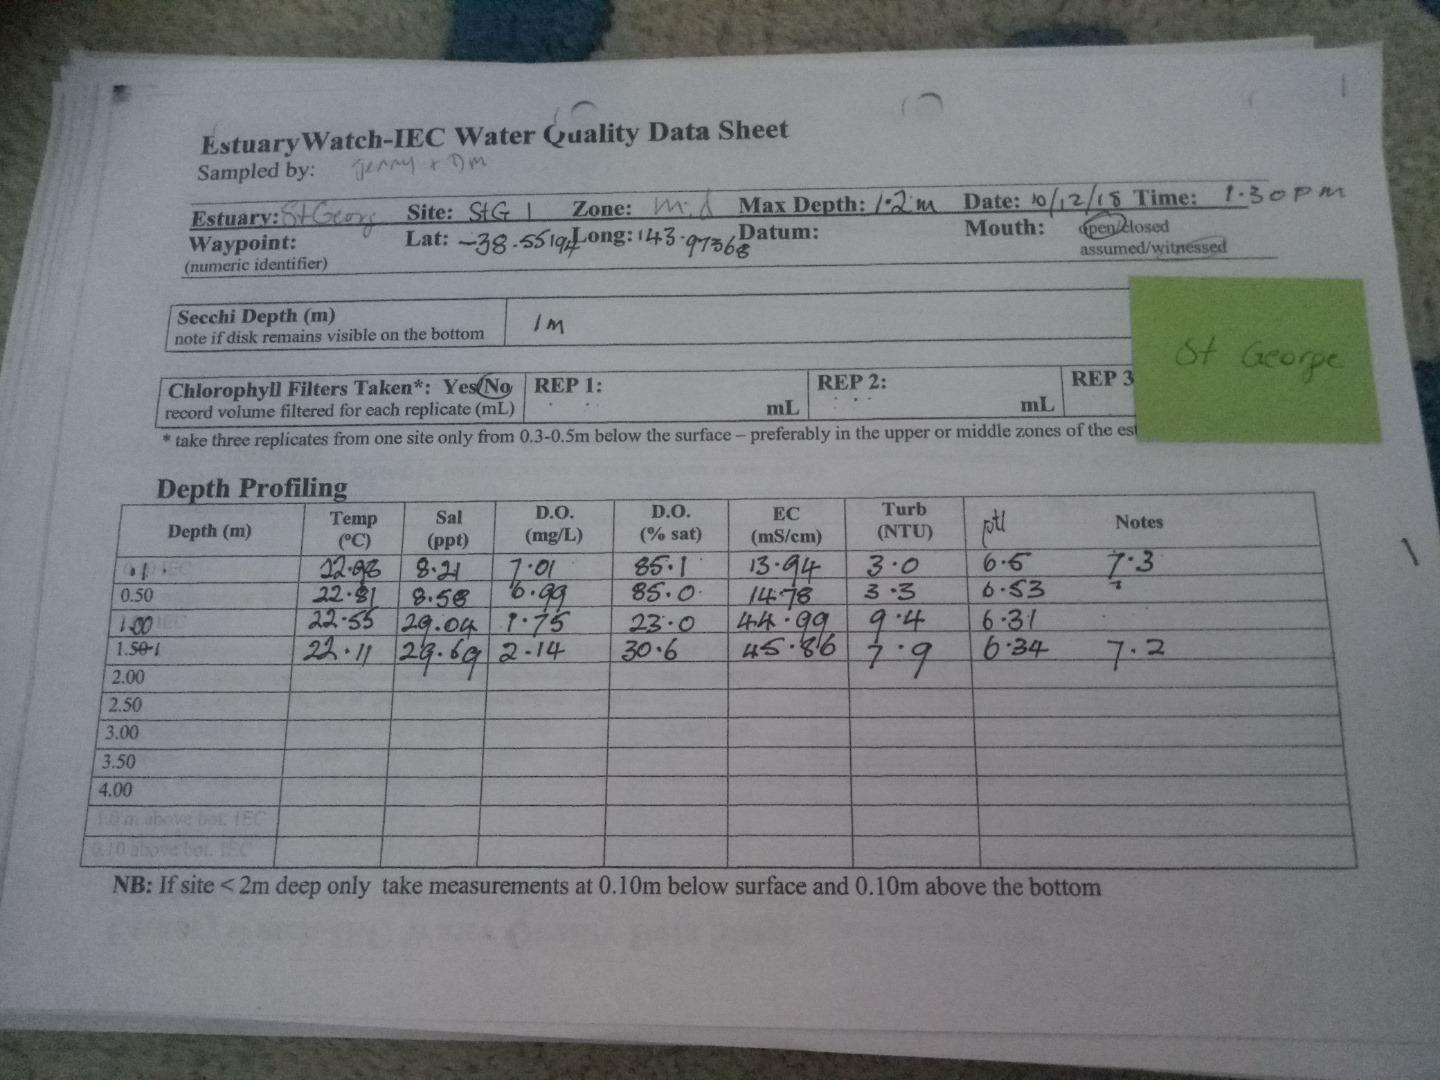 EstuaryWatch-IEC Water Quality Data Sheet
Sampled by: Jenny + Dm
Estuary: St George Site: StG 1 Zone: mid Max Depth: 1.2m Date: 10/12/18 Time: 1.30pm
Waypoint: Lat: -38.55194 Long: 143.97368 Datum: Mouth: open/closed
(numeric identifier) assumed/witnessed
Secchi Depth (m) 1m
note if disk remains visible on the bottom
St George
Chlorophyll Filters Taken*: Yes/No REP 1: REP 2: REP 3
record volume filtered for each replicate (mL) mL mL
* take three replicates from one site only from 0.3-0.5m below the surface – preferably in the upper or middle zones of the est
Depth Profiling
Depth (m) Temp (ºC) Sal (ppt) D.O. (mg/L) D.O. (% sat) EC (mS/cm) Turb (NTU) pH Notes
.1 22.98 8.21 7.01 85.1 13.94 3.0 6.5 7.3
0.50 22.81 8.58 6.99 85.0 14.78 3.3 6.53
1.00 22.55 29.04 1.75 23.0 44.99 9.4 6.31
1.50 22.11 29.69 2.14 30.6 45.86 7.9 6.34 7.2
2.00
2.50
3.00
3.50
4.00
1.0 m above bot. IEC
0.10 above bot. IEC
NB: If site < 2m deep only take measurements at 0.10m below surface and 0.10m above the bottom